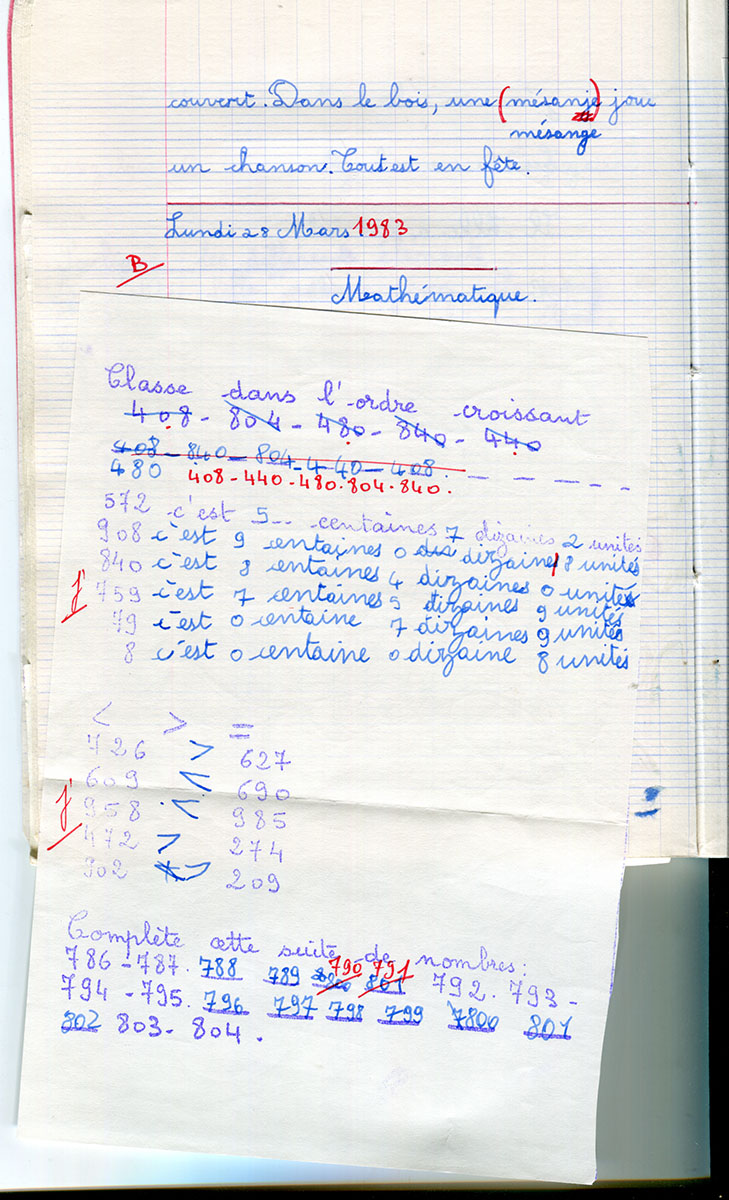 couvert. Dans le bois, une (mésanje) joue
mésange
un chanson. Tout est en fête.
Lundi 28 Mars 1983
B
Mathématique.
Classe dans l'ordre croissant
408 - 804 - 480 - 840 - 440
408 - 840 - 804 - 440 - 408. - - - - -
480 408 - 440 - 480 - 804 - 840.
572 c'est 5 centaines 7 dizaines 2 unités
908 c'est 9 centaines 0 dizaine 8 unités
840 c'est 8 centaines 4 dizaines 0 unités
759 c'est 7 centaines 5 dizaines 9 unités
79 c'est 0 centaine 7 dizaines 9 unités
8 c'est 0 centaine 0 dizaine 8 unités
< > =
726 > 627
609 < 690
958 < 985
472 > 274
902 > 209
Complète cette suite de nombres:
790 791
786 - 787. 788 789 801 792. 793 -
794 - 795. 796 797 798 799 7800 801
802 803 - 804.